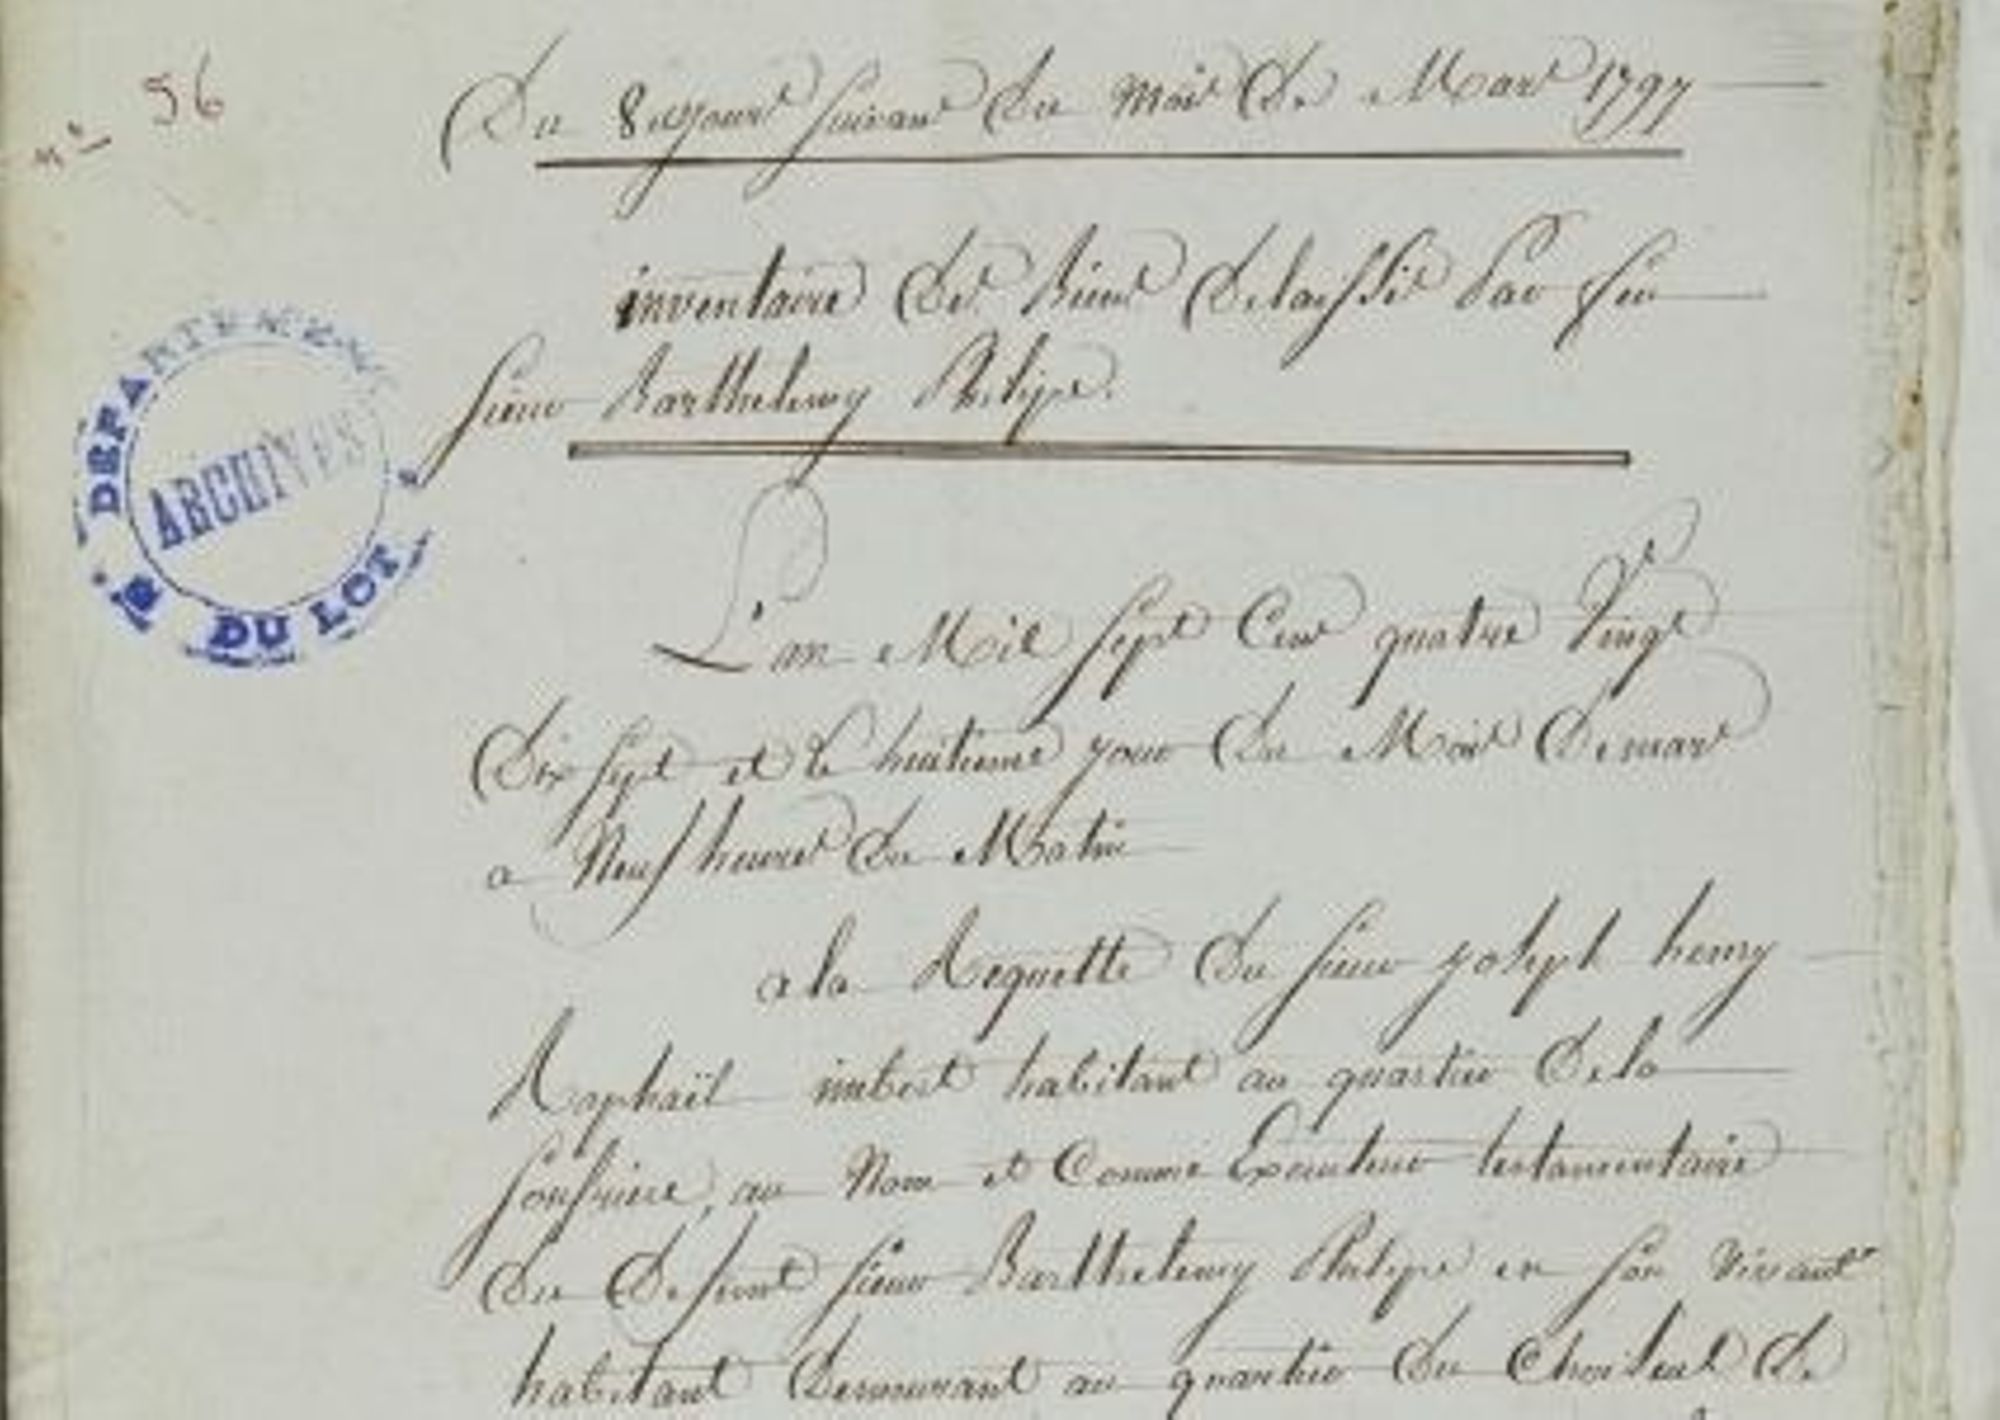 n° 56
Du 8 et jours suivans du mois de Mars 1797
inventaire des Biens delaissés Par feu
sieur Barthelemy Philipe.
DEPARTEMENT
ARCHIVES
DU LOT
L'an Mil sept Cens quatre Vingt
Dix sept et le huitieme jour du Mois de mars
a Neuf heures du Matin
a la Requette du sieur joseph henry
Raphaël imbert habitant au quartier de la
Soufriere, au Nom et Comme Executeur testamentaire
du defunt sieur Barthelemy Philipe en son vivant
habitant demeurant au quartier du Choiseul de